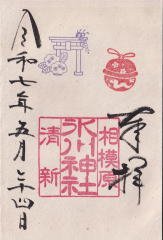 奉拝
相模原
氷川神社
清新
令和七年五月二十四日